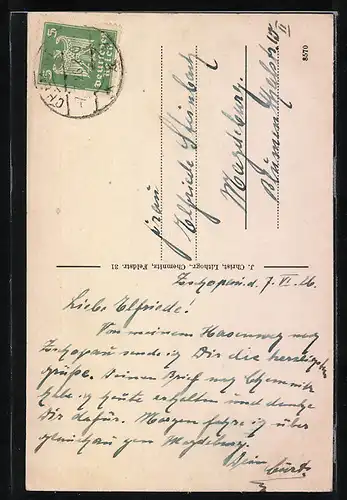 5 5
Deutsches
Reich
8570
Frau
Elfriede Steinbach
Magdeburg.
II
J. Christ, Lithogr., Chemnitz, Feldstr. 31
Zschopau, d. 7. VI. 26.
Liebe Elfriede!
Von meinem
Zschopau sende ich Dir die herzligsten
grüße. Deinen Brief nach Chemnitz
habe ich heute erhalten und danke
Dir dafür. Morgen fahre ich über
gen Magdeburg.
Dein Curt.